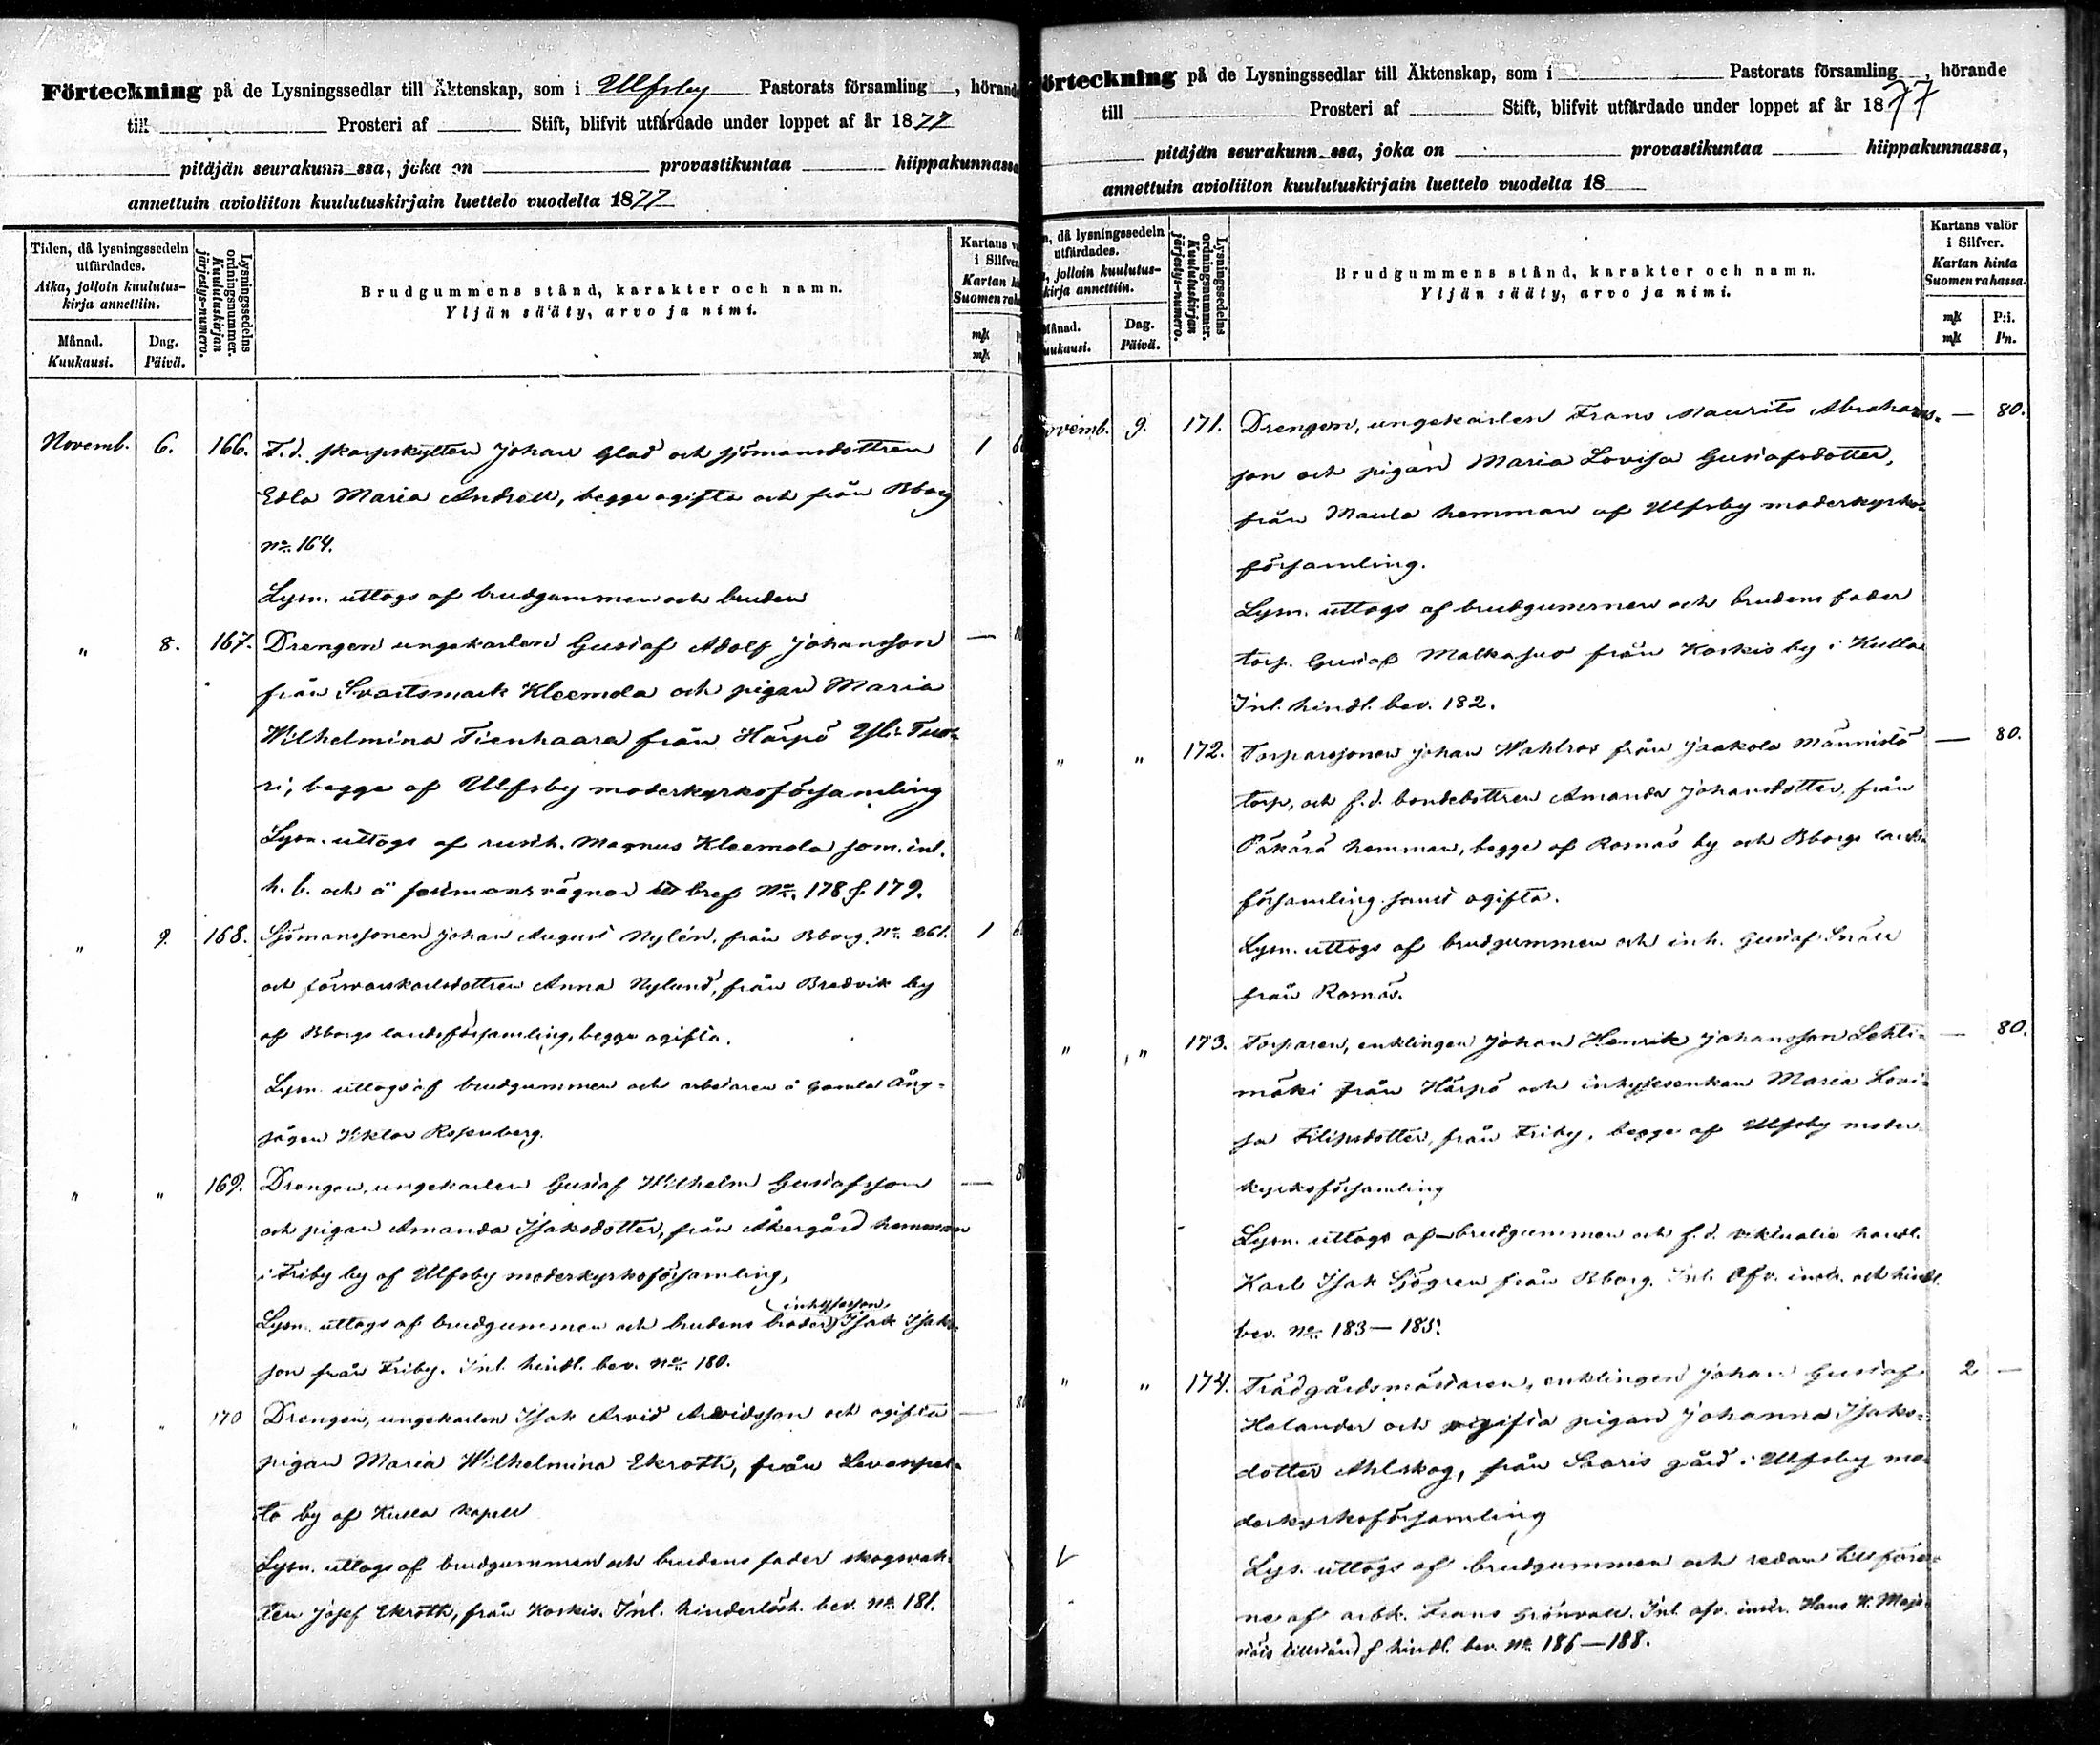 Förteckning på de Lysningssedlar till Äktenskap, som i Ulfsby Pastorats församling, hörande
till Prosteri af Stift, blifvit utfärdade under loppet af år 1877
pitäjän seurakunn ssa, joka on provastikuntaa hiippakunnassa
annettuin avioliiton kuulutuskirjain luettelo vuodelta 1877
Tiden, då lysningssedeln utfärdades.
Aika, jolloin kuulutus-kirja annettiin.
Månad. Kuukausi.
Dag. Päivä.
Lysningssedelns ordningsnummer.
Kuulutuskirjan järjestys-numero.
Brudgummens stånd, karakter och namn.
Yljän sääty, arvo ja nimi.
Kartans
i Silfver
Kartan
Suomen
mk
mk
Novemb. 6. 166. F.d. skarpskytten Johan Glad och sjömansdottren 1
Edla Maria Andrell, begge ogifta och från Bborg
No 164.
Lysn. uttogs af brudgummen och bruden
" 8. 167. Drengen ungekarlen Gustaf Adolf Johansson —
från Svartsmark Kleemola och pigan Maria
Wilhelmina Tienhaara från Härpö Yli-Tuo-
ri, begge af Ulfsby moderkyrkoförsamling
Lysn. uttogs af rusth. Magnus Kleemola som inl.
h. b. och å vägnar bref No. 178 & 179.
" 9. 168. Sjömanssonen Johan August Nylén, från Bborg No 261. 1
och försvarskarlsdottren Anna Nylund, från Bredvik by
af Bborgs landsförsamling, begge ogifta.
Lysn. uttogs af brudgummen och arbetaren å gamla Ång-
sågen Viktor Rosenberg.
" " 169. Drengen, ungekarlen Gustaf Wilhelm Gustafsson —
och pigan Amanda Isaksdotter, från Åkergård hemman
i Friby by af Ulfsby moderkyrkoförsamling,
Lysn. uttogs af brudgummen och brudens broder, inhysesson, Isak Isaks-
son från Friby. Inl. hindl. bev. No 180.
" " 170 Drengen, ungekarlen Isak Arvid Arvidsson och ogifta —
pigan Maria Wilhelmina Ekroth, från Levanpel-
to by af Kulla kapell
Lysn. uttogs af brudgummen och brudens fader skogvak-
ten Josef Ekroth, från Koskis. Inl. hinderlösh. bev. No 181.
örteckning på de Lysningssedlar till Äktenskap, som i Pastorats församling, hörande
till Prosteri af Stift, blifvit utfärdade under loppet af år 1877
pitäjän seurakunn ssa, joka on provastikuntaa hiippakunnassa,
annettuin avioliiton kuulutuskirjain luettelo vuodelta 18
, då lysningssedeln utfärdades.
, jolloin kuulutus-kirja annettiin.
Månad. uukausi.
Dag. Päivä.
Lysningssedelns ordningsnummer.
Kuulutuskirjan järjestys-numero.
Brudgummens stånd, karakter och namn.
Yljän sääty, arvo ja nimi.
Kartans valör
i Silfver.
Kartan hinta
Suomen rahassa.
mk P:i.
mk Pn.
ovemb. 9. 171. Drengen, ungekarlen Frans Maurits Abrahams- — 80.
son och pigan Maria Lovisa Gustafsdotter,
från Maula hemman af Ulfsby moderkyrko-
församling.
Lysn. uttogs af brudgummen och brudens fader
torp. Gustaf Malkasuo från Koskis by i Kulla
Inl. hindl. bev. 182.
" " 172. Torparesonen Johan Wahlros från Jaakola Männistö — 80.
torp, och f.d. bondedottren Amanda Johansdotter, från
Päkärä hemman, begge af Rosnäs by och Bborgs lands-
församling samt ogifta.
Lysn. uttogs af brudgummen och inh. Gustaf Snäll
från Rosnäs.
" " 173. Torparen, enklingen Johan Henrik Johansson Lehti- — 80.
mäki från Härpö och inhysesenkan Maria Lovi-
sa Filipsdotter, från Friby, begge af Ulfsby moder-
kyrkoförsamling
Lysn. uttogs af brudgummen och f.d. viktualie handl.
Karl Isak Sjögren från Bborg. Inl. Afv. instr. och hindl.
bev. No 183—185.
" " 174. Trädgårdsmästaren, enklingen Johan Gustaf 2 —
Helander och ogifta pigan Johanna Isaks-
dotter Ahlskog, från Saaris gård i Ulfsby mo-
derkyrkoförsamling
Lys. uttogs af brudgummen och redan tillföre-
ne af arbk. Frans Grönvall. Inl. afv. instr. Hans K. Maje-
stäts tillstånd & hindl. bev. No 186—188.